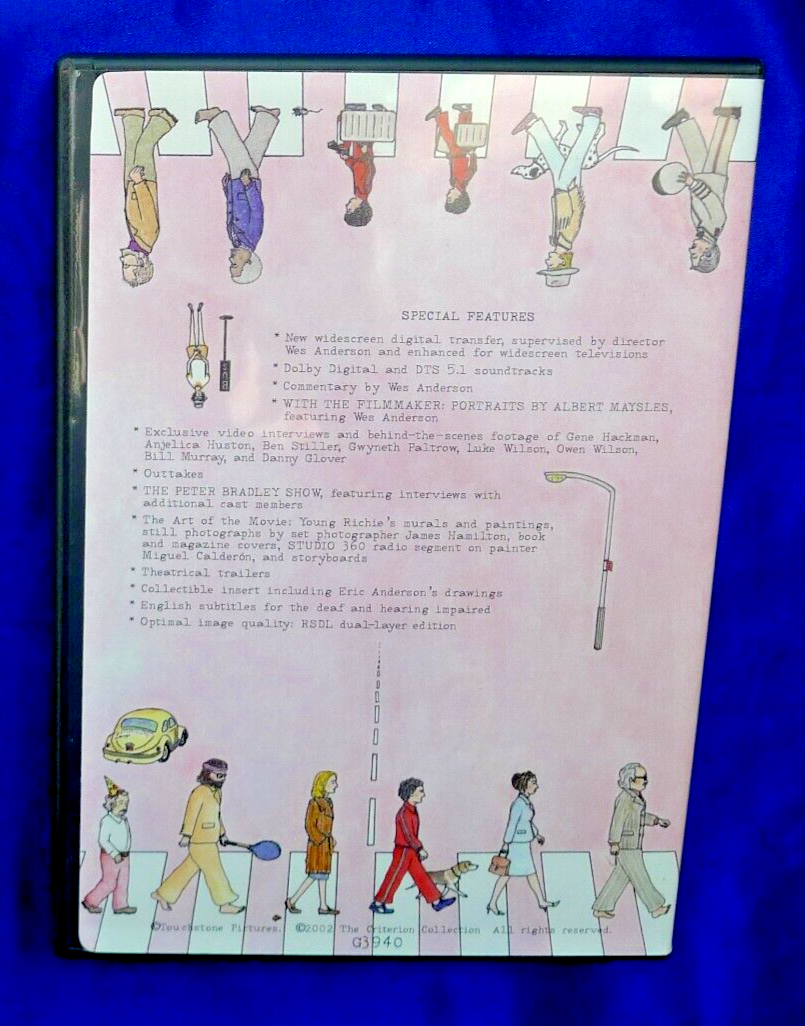 SPECIAL FEATURES
* New widescreen digital transfer, supervised by director
Wes Anderson and enhanced for widescreen televisions
* Dolby Digital and DTS 5.1 soundtracks
* Commentary by Wes Anderson
* WITH THE FILMMAKER: PORTRAITS BY ALBERT MAYSLES,
featuring Wes Anderson
BUS
* Exclusive video interviews and behind-the-scenes footage of Gene Hackman,
Anjelica Huston, Ben Stiller, Gwyneth Paltrow, Luke Wilson, Owen Wilson,
Bill Murray, and Danny Glover
* Outtakes
* THE PETER BRADLEY SHOW, featuring interviews with
additional cast members
* The Art of the Movie: Young Richie's murals and paintings,
still photographs by set photographer James Hamilton, book
and magazine covers, STUDIO 360 radio segment on painter
Miguel Calderón, and storyboards
* Theatrical trailers
* Collectible insert including Eric Anderson's drawings
* English subtitles for the deaf and hearing impaired
* Optimal image quality: RSDL dual-layer edition
©Touchstone Pictures. ©2002 The Criterion Collection All rights reserved.
G3940